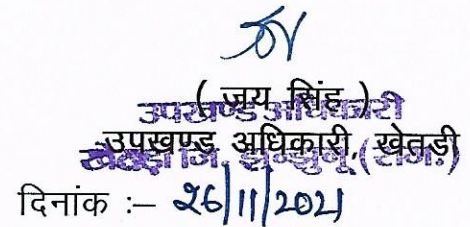 ( जय सिंह )
उपखण्ड अधिकारी
उपखण्ड अधिकारी, खेतड़ी
खेतड़ी जि. झुन्झुनू (राज.)
दिनांक :– 26/11/2021